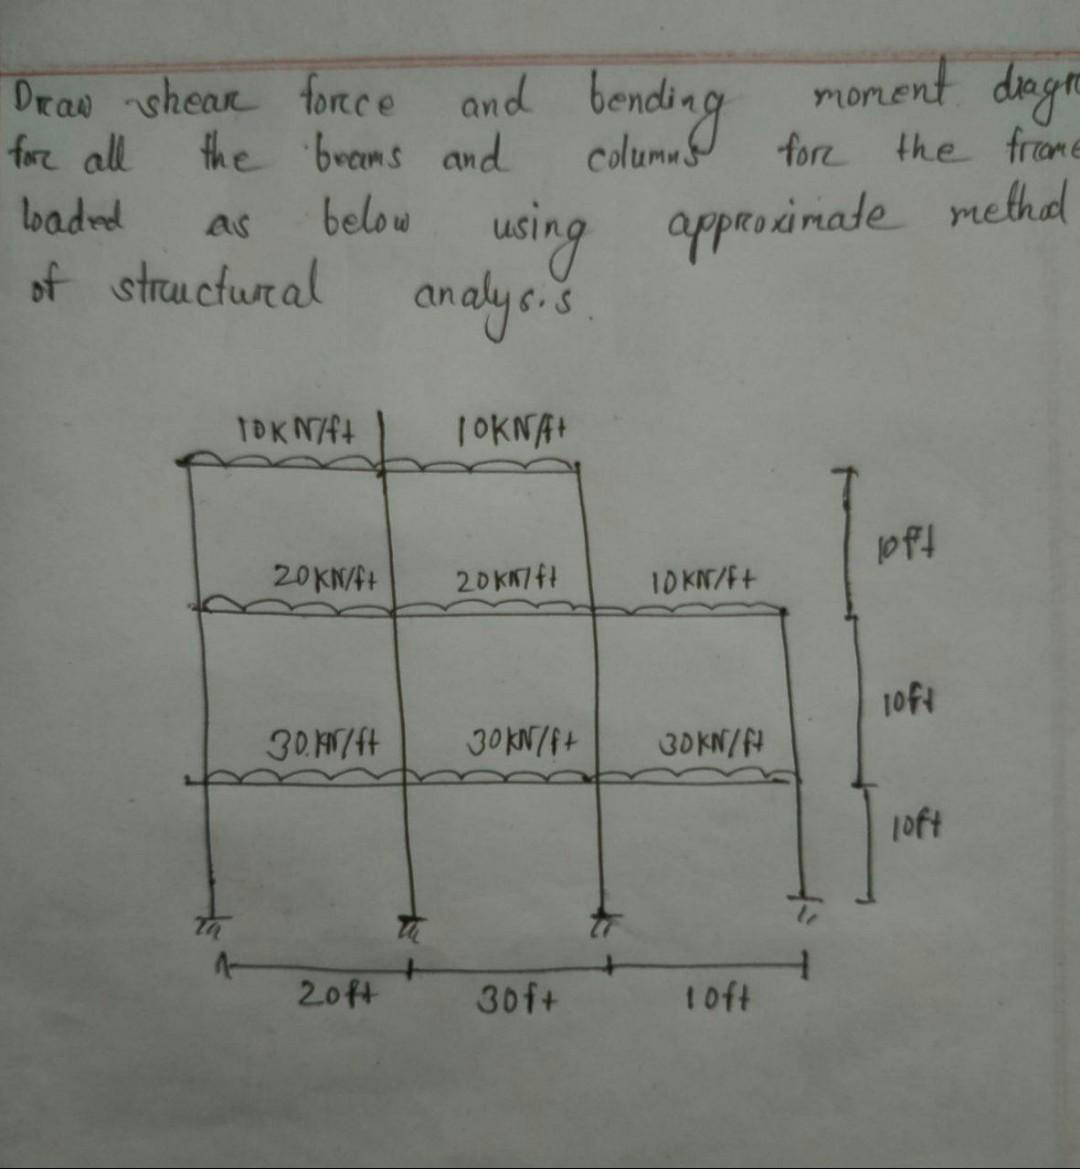 Draw shear force and bending moment diagr
for all the beams and columns for the frame
loaded as below using approximate method
of structural analysis.
10KN/ft 10KN/ft
10ft
20KN/ft 20KN/ft 10KN/ft
10ft
30KN/ft 30KN/ft 30KN/ft
10ft
20ft 30ft 10ft